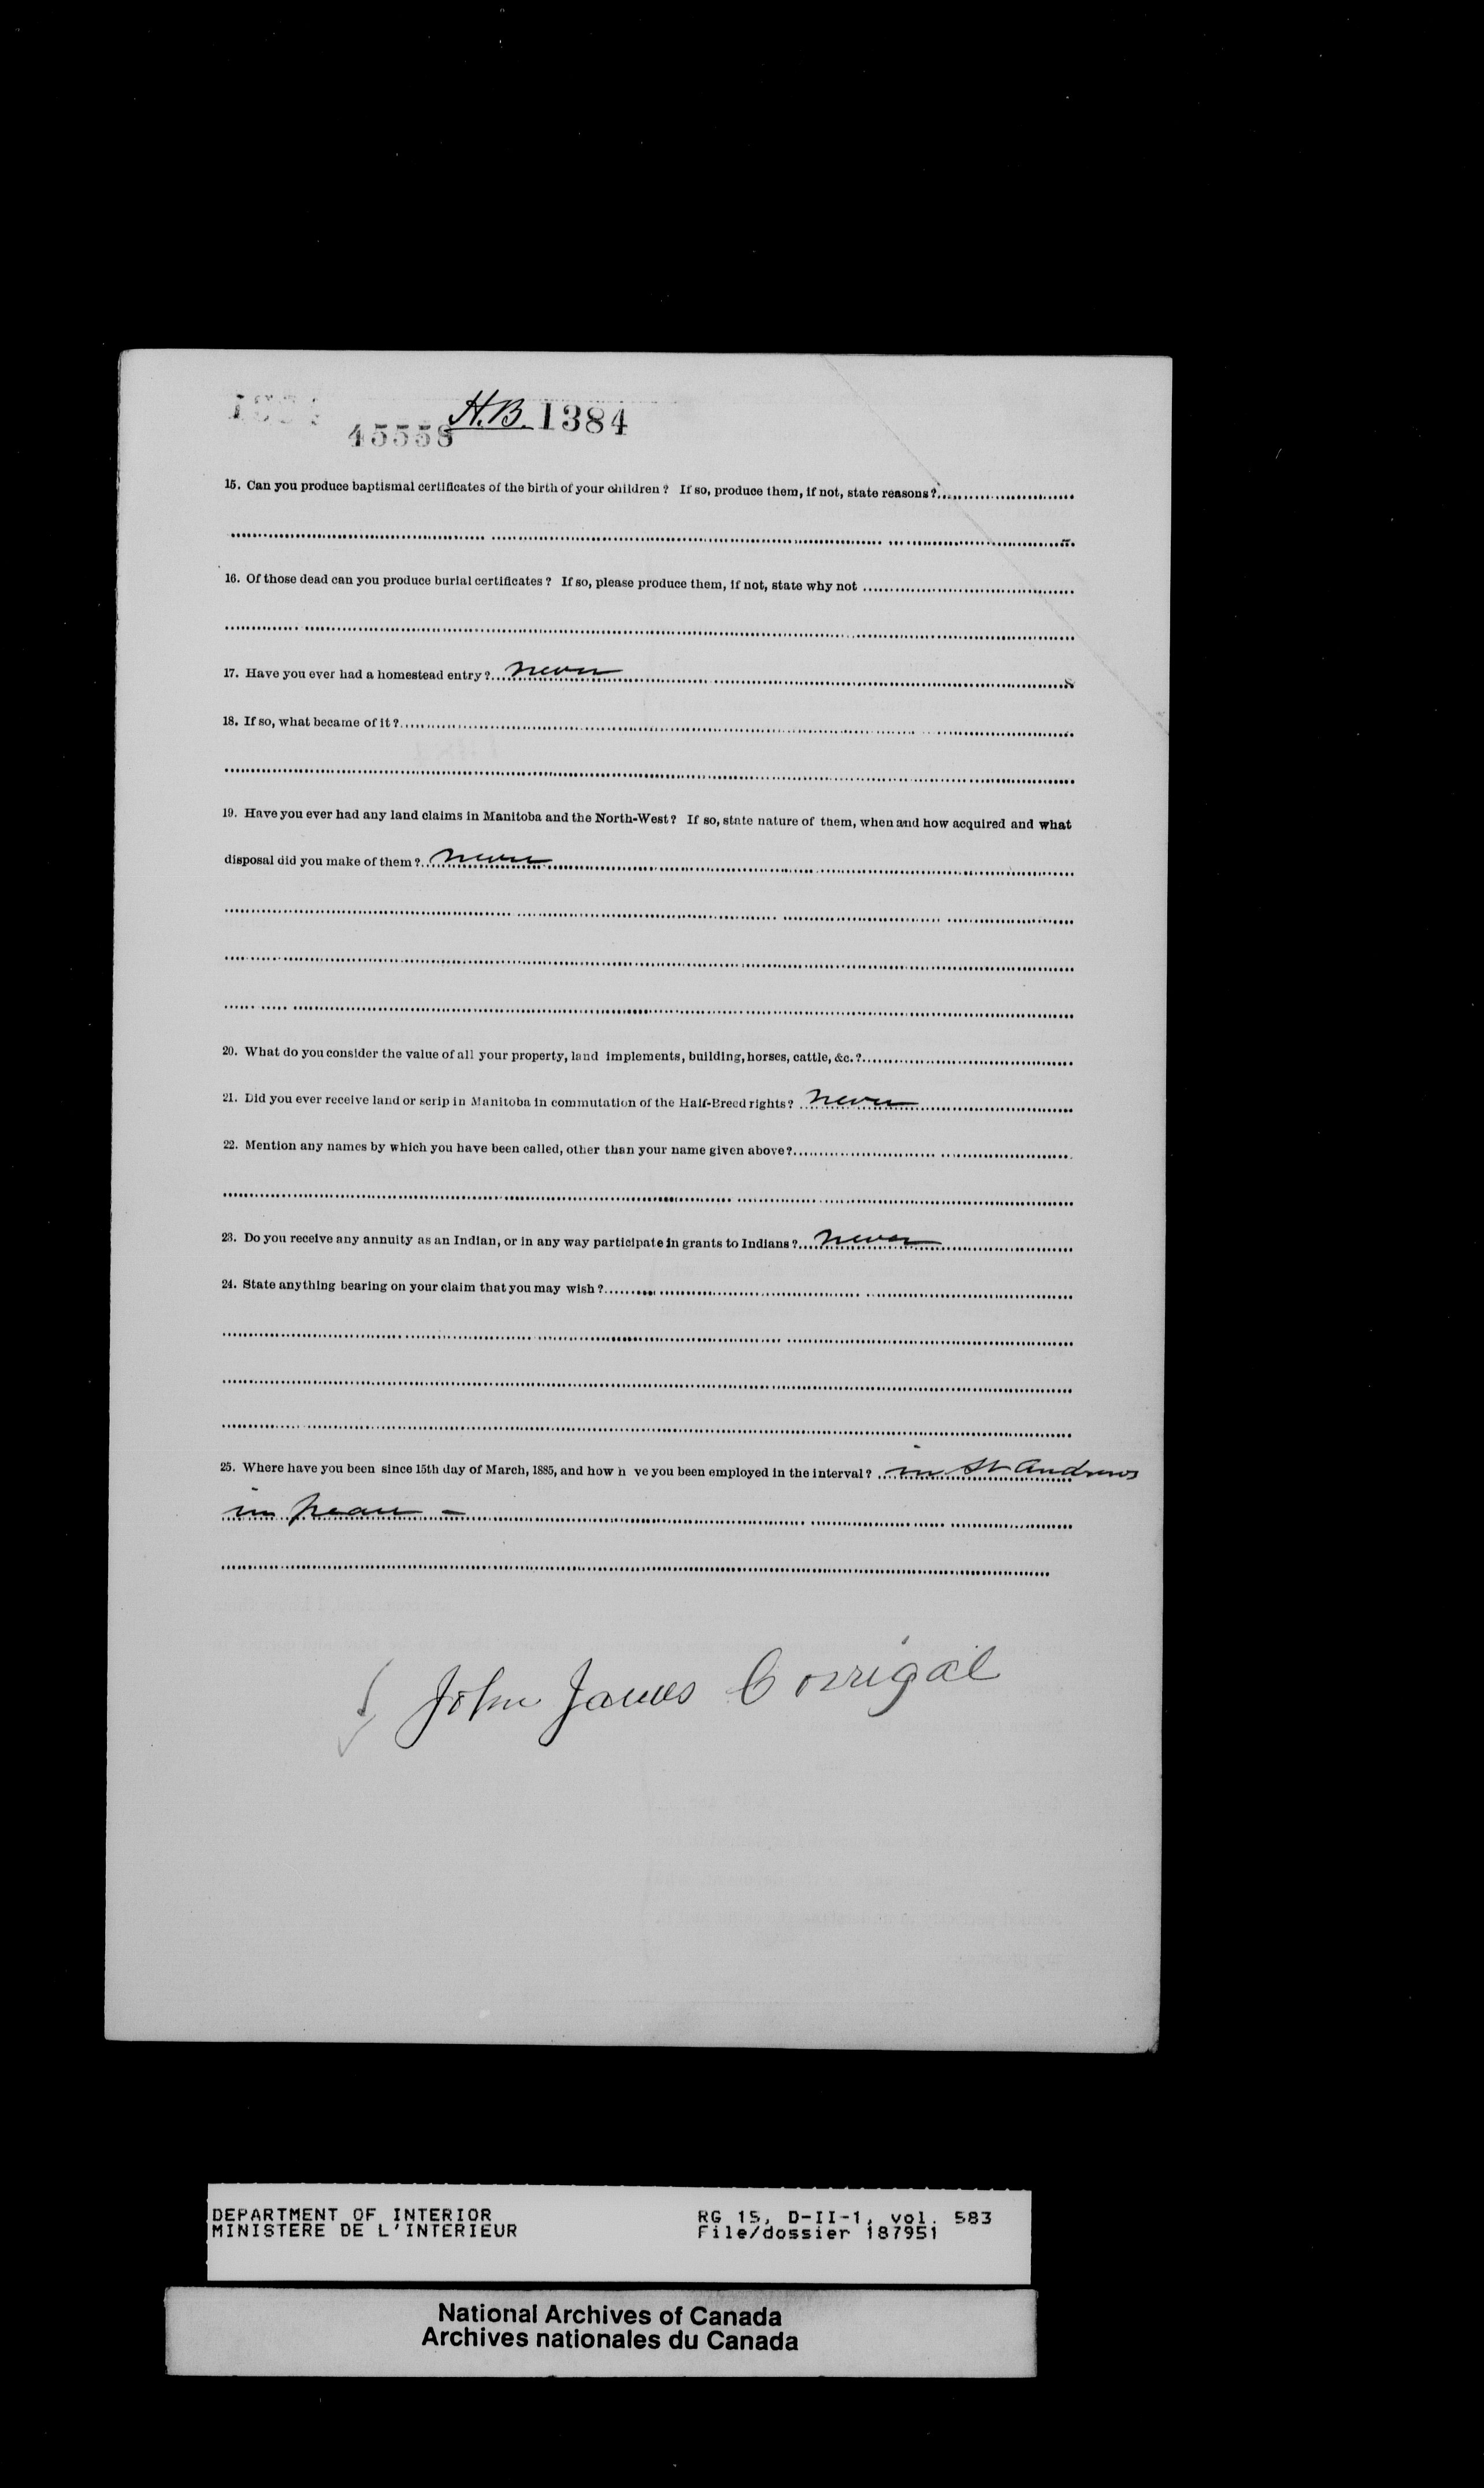 45558 H.B. 1384
15. Can you produce baptismal certificates of the birth of your children? If so, produce them, if not, state reasons?
16. Of those dead can you produce burial certificates? If so, please produce them, if not, state why not
17. Have you ever had a homestead entry? never
18. If so, what became of it?
19. Have you ever had any land claims in Manitoba and the North-West? If so, state nature of them, when and how acquired and what
disposal did you make of them? never
20. What do you consider the value of all your property, land implements, building, horses, cattle, &c.?
21. Did you ever receive land or scrip in Manitoba in commutation of the Half-Breed rights? never
22. Mention any names by which you have been called, other than your name given above?
23. Do you receive any annuity as an Indian, or in any way participate in grants to Indians? never
24. State anything bearing on your claim that you may wish?
25. Where have you been since 15th day of March, 1885, and how h ve you been employed in the interval? in St Andrews
in peace –
John James Corrigal
DEPARTMENT OF INTERIOR RG 15, D-II-1, vol. 583
MINISTERE DE L'INTERIEUR File/dossier 187951
National Archives of Canada
Archives nationales du Canada